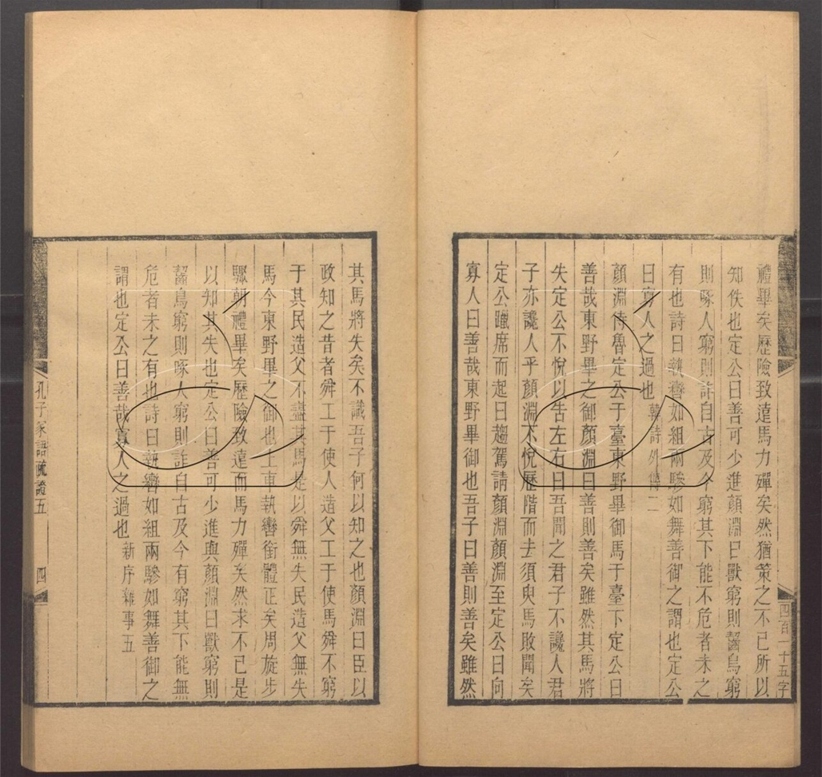 禮畢矣歷險致遠馬力殫矣然猶策之不已所以
知佚也定公曰善可少進顏淵曰獸窮則齧鳥窮
則啄人窮則詐自古及今窮其下能不危者未之
有也詩曰執轡如組兩驂如舞善御之謂也定公
曰寡人之過也 韓詩外傳二
顏淵侍魯定公于臺東野畢御馬于臺下定公曰
善哉東野畢之御顏淵曰善則善矣雖然其馬將
失定公不悅以告左右曰吾聞之君子不讒人君
子亦讒人乎顏淵不悅歷階而去須臾馬敗聞矣
定公躐席而起曰趨駕請顏淵顏淵至定公曰向
寡人曰善哉東野畢御也吾子曰善則善矣雖然
四百二十五字
其馬將失矣不識吾子何以知之也顏淵曰臣以
政知之昔者舜工于使人造父工于使馬舜不窮
于其民造父不盡其馬是以舜無失民造父無失
馬今東野畢之御也上車執轡銜體正矣周旋步
驟朝禮畢矣歷險致遠而馬力殫矣然求不已是
以知其失也定公曰善可少進與顏淵曰獸窮則
齧鳥窮則啄人窮則詐自古及今有窮其下能無
危者未之有也詩曰執轡如組兩驂如舞善御之
謂也定公曰善哉寡人之過也 新序雜事五
孔子家語疏證五
四